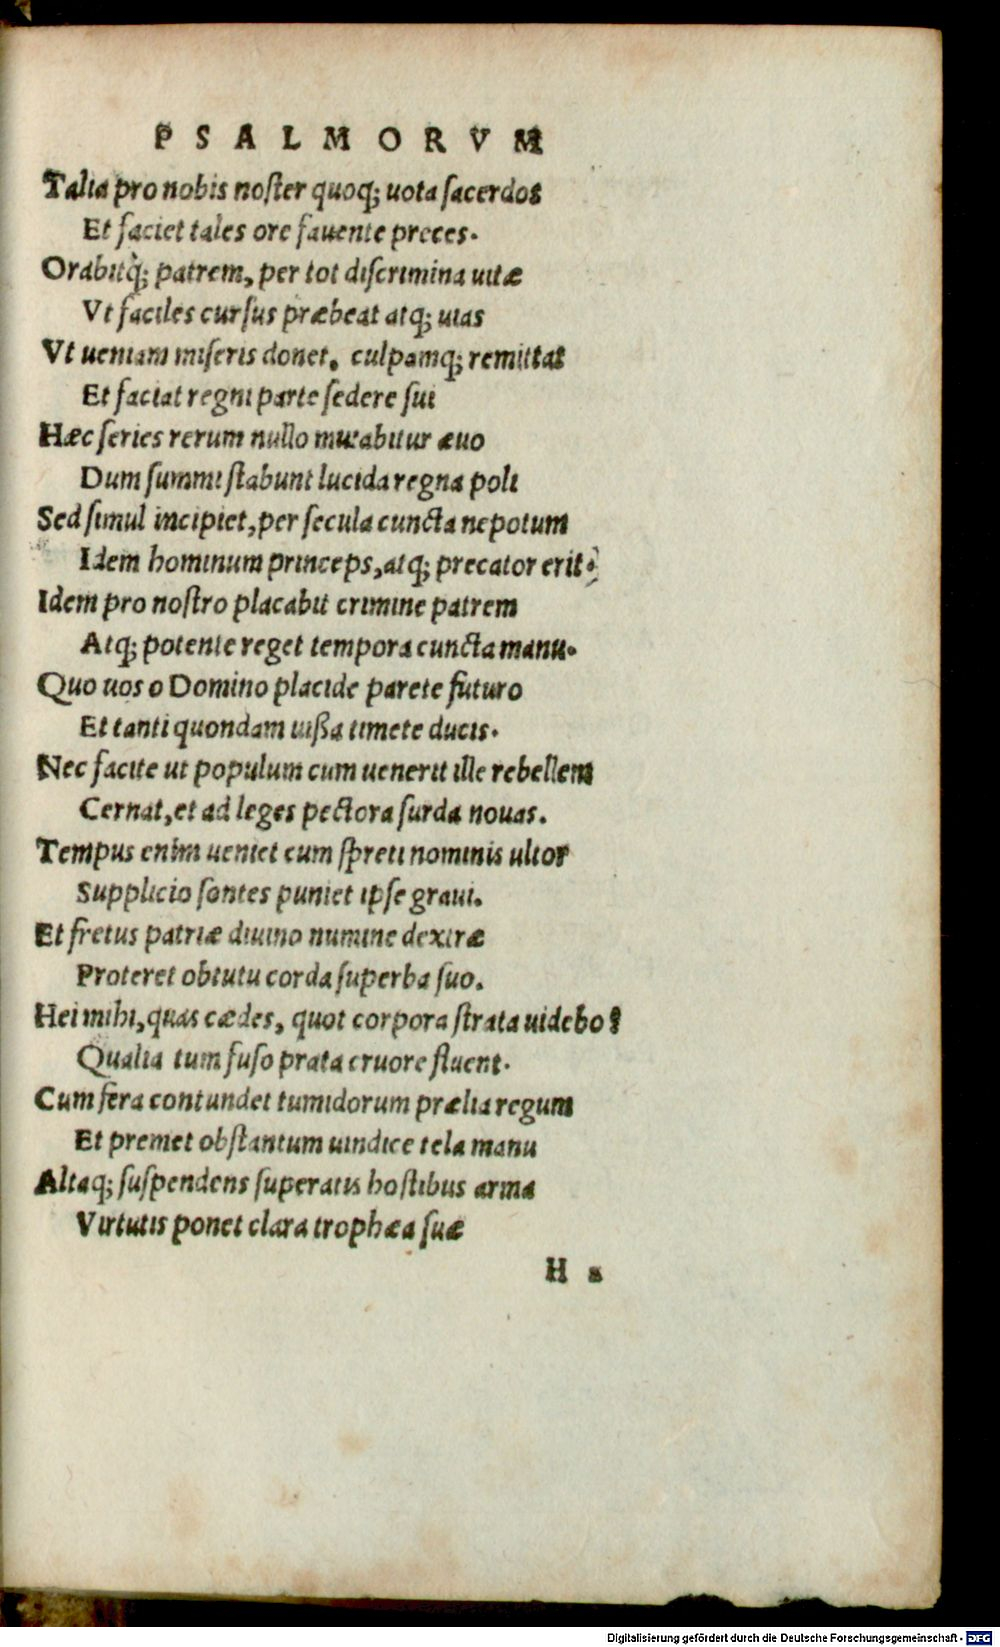 PSALMORVM
Talia pro nobis noster quoq; uota sacerdos
Et faciet tales ore fauente preces.
Orabitq; patrem, per tot discrimina uitæ
Vt faciles cursus præbeat atq; uias
Vt ueniam miseris donet, culpamq; remittat
Et faciat regni parte sedere sui
Hæc series rerum nullo mutabitur æuo
Dum summi stabunt lucida regna poli
Sed simul incipiet, per secula cuncta nepotum
Idem hominum princeps, atq; precator erit.
Idem pro nostro placabit crimine patrem
Atq; potente reget tempora cuncta manu.
Quo uos o Domino placide parete futuro
Et tanti quondam iußa timete ducis.
Nec facite ut populum cum uenerit ille rebellem
Cernat, et ad leges pectora surda nouas.
Tempus enim ueniet cum spreti nominis ultor
Supplicio sontes puniet ipse graui.
Et fretus patriæ diuino numine dextræ
Proteret obtutu corda superba suo.
Hei mihi, quas cædes, quot corpora strata uidebo?
Qualia tum fuso prata cruore fluent.
Cum fera contundet tumidorum prælia regum
Et premet obstantum uindice tela manu
Altaq; suspendens superatis hostibus arma
Virtutis ponet clara trophæa suæ
H
Digitalisierung gefördert durch die Deutsche Forschungsgemeinschaft - DFG